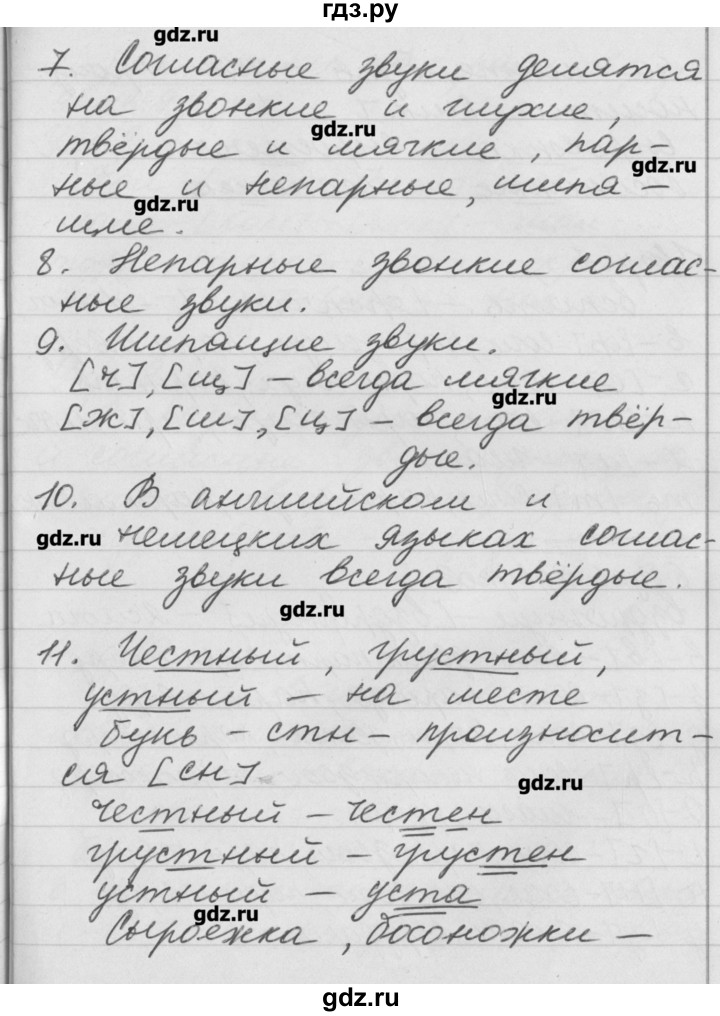 гдз.ру
gdz.ru
7. Согласные звуки делятся
на звонкие и глухие,
gdz.ru
твёрдые и мягкие, пар-
gdz.ru
ные и непарные, шипя-
gdz.ru
щие.
8. Непарные звонкие соглас-
ные звуки.
9. Шипящие звуки.
[ч], [щ] – всегда мягкие
gdz.ru
[ж], [ш], [ц] – всегда твёр-
дые.
10. В английском и
gdz.ru
немецких языках соглас-
ные звуки всегда твёрдые.
gdz.ru
11. Честный, грустный,
устный – на месте
букв – стн – произносит-
ся [сн].
gdz.ru
честный – честен
грустный – грустен
устный – уста
gdz.ru
Сыроежка, босоножки –
gdz.ru